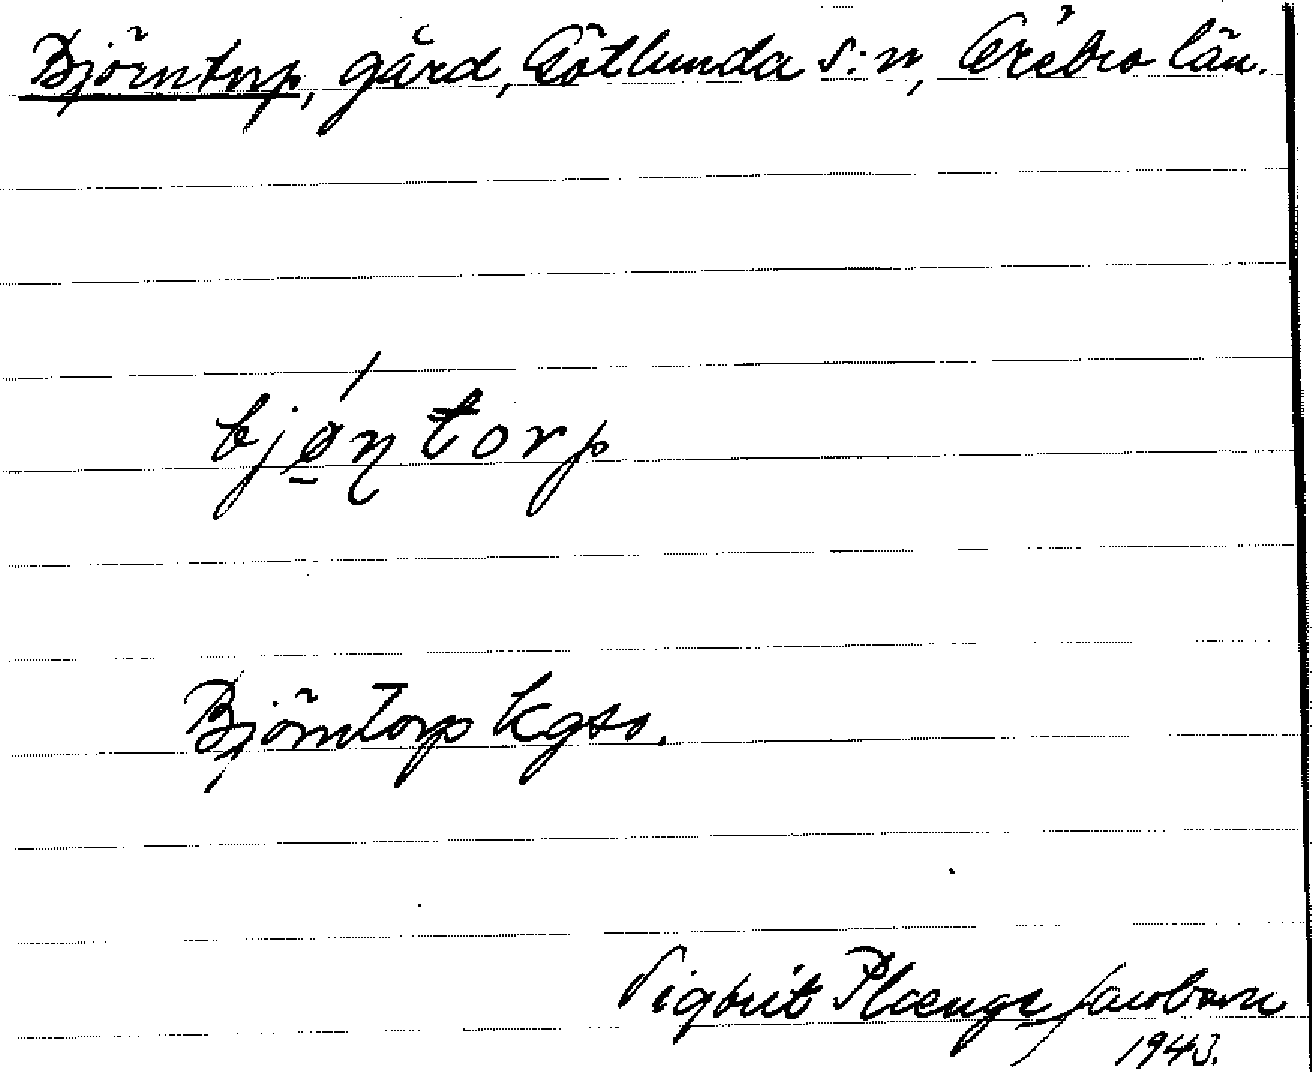 Björntorp, gård, Götlunda s:n, Örebro län.
bjǿ̱ɳtorp
Björntorp kgso.
Sigbrit Plænge Jacobson
1943.